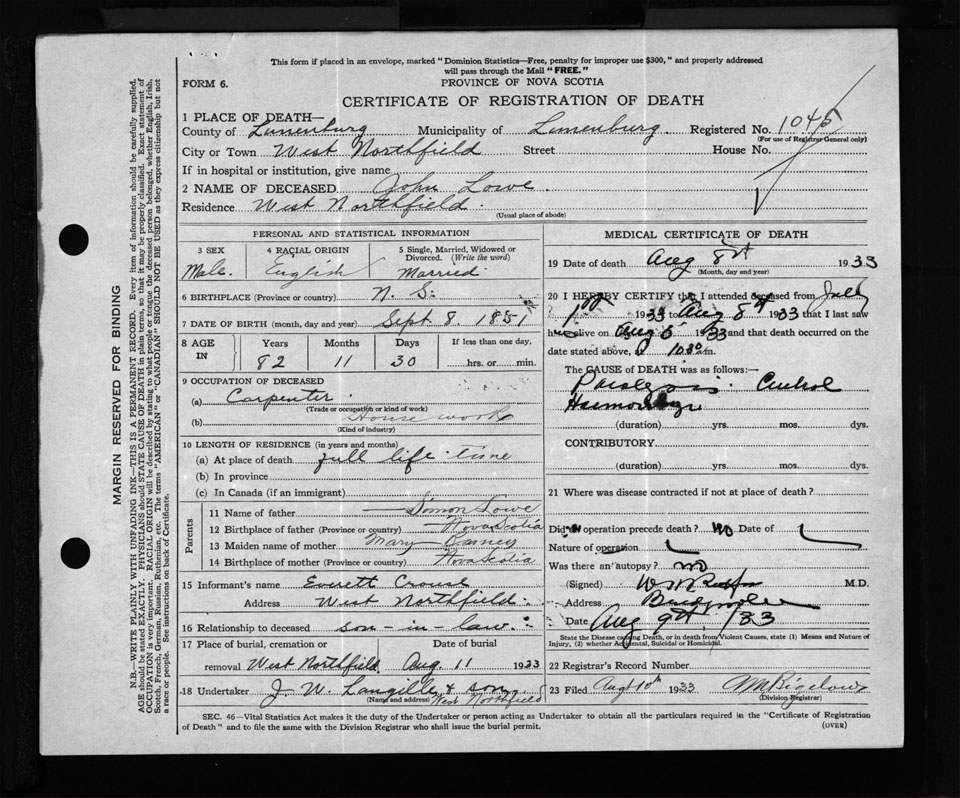 This form if placed in an envelope, marked "Dominion Statistics—Free, penalty for improper use $300," and properly addressed
will pass through the Mail "FREE."
FORM 6.
PROVINCE OF NOVA SCOTIA
CERTIFICATE OF REGISTRATION OF DEATH
1 PLACE OF DEATH—
County of Lunenburg Municipality of Lunenburg. Registered No. 1045
(For use of Registrar General only)
City or Town West Northfield Street House No.
If in hospital or institution, give name
2 NAME OF DECEASED John Lowe.
Residence West Northfield.
(Usual place of abode)
PERSONAL AND STATISTICAL INFORMATION
3 SEX 4 RACIAL ORIGIN 5 Single, Married, Widowed or Divorced. (Write the word)
Male. English Married.
6 BIRTHPLACE (Province or country) N. S.
7 DATE OF BIRTH (month, day and year) Sept. 8. 1851
8 AGE IN Years Months Days If less than one day,
82 11 30 hrs. or min.
9 OCCUPATION OF DECEASED
(a) Carpenter.
(Trade or occupation or kind of work)
(b) House work
(Kind of industry)
10 LENGTH OF RESIDENCE (in years and months)
(a) At place of death full life time
(b) In province
(c) In Canada (if an immigrant)
Parents
11 Name of father Simon Lowe
12 Birthplace of father (Province or country) Nova Scotia
13 Maiden name of mother Mary
14 Birthplace of mother (Province or country) Nova Scotia
15 Informant's name Everett Crouse
Address West Northfield.
16 Relationship to deceased son-in-law.
17 Place of burial, cremation or Date of burial
removal West Northfield. Aug. 11 1933
18 Undertaker J. W. Langille & son,
(Name and address) West Northfield
MEDICAL CERTIFICATE OF DEATH
19 Date of death Aug 8th 1933
(Month, day and year)
20 I HEREBY CERTIFY that I attended deceased from July
1933 to Aug 8th 1933 that I last saw
him alive on Aug 1933 and that death occurred on
date stated above, at 10.30 m.
The CAUSE of DEATH was as follows:—
Paralysis.
(duration) yrs. mos. dys.
CONTRIBUTORY
(duration) yrs. mos. dys.
21 Where was disease contracted if not at place of death?
Did operation precede death? No Date of
Nature of operation
Was there an autopsy? no
(Signed) M.D.
Address
Date Aug 9th, /33
State the Disease causing Death, or in death from Violent Causes, state (1) Means and Nature of
Injury, (2) whether Accidental, Suicidal or Homicidal.
22 Registrar's Record Number
23 Filed Aug 10th 1933 Bigelow
(Division Registrar)
SEC. 46—Vital Statistics Act makes it the duty of the Undertaker or person acting as Undertaker to obtain all the particulars required in the "Certificate of Registration
of Death" and to file the same with the Division Registrar who shall issue the burial permit.
(OVER)
MARGIN RESERVED FOR BINDING
N.B.—WRITE PLAINLY WITH UNFADING INK—THIS IS A PERMANENT RECORD. Every item of information should be carefully supplied.
AGE should be stated EXACTLY. PHYSICIANS should STATE CAUSE OF DEATH in plain terms, so that it may be properly classified. Exact statement of
OCCUPATION is very important. RACIAL ORIGIN will be described by stating to what people or tongue the deceased person belonged, whether English, Irish,
Scotch, French, German, Russian, Ruthenian, etc. The terms "AMERICAN" or "CANADIAN" SHOULD NOT BE USED as they express citizenship but not
a race or people. See instructions on back of Certificate.